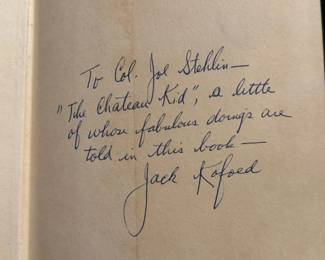 To Col. Joe Stehlin—
"The Chateau Kid", a little
of whose fabulous doings are
told in this book—
Jack Kofoed